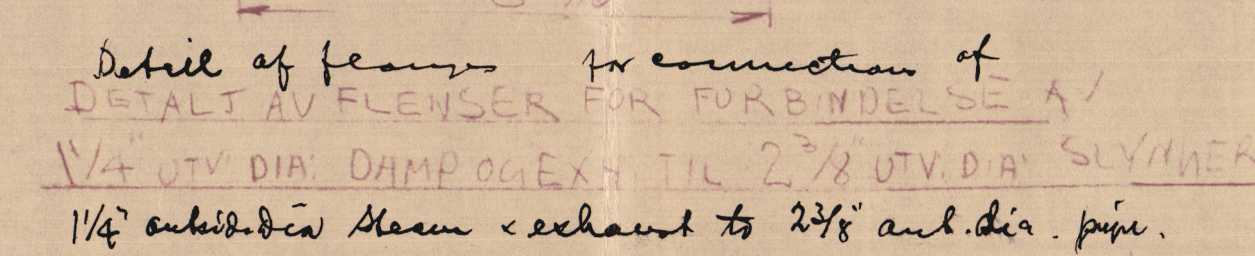 Detail of flanges for connection of
DETALJ AV FLENSER FOR FORBINDELSE AV
1 1/4" UTV. DIA. DAMP OG EXH TIL 2 3/8" UTV. DIA.
1 1/4" outside dia steam & exhaust to 2 3/8" out. dia. pipe.